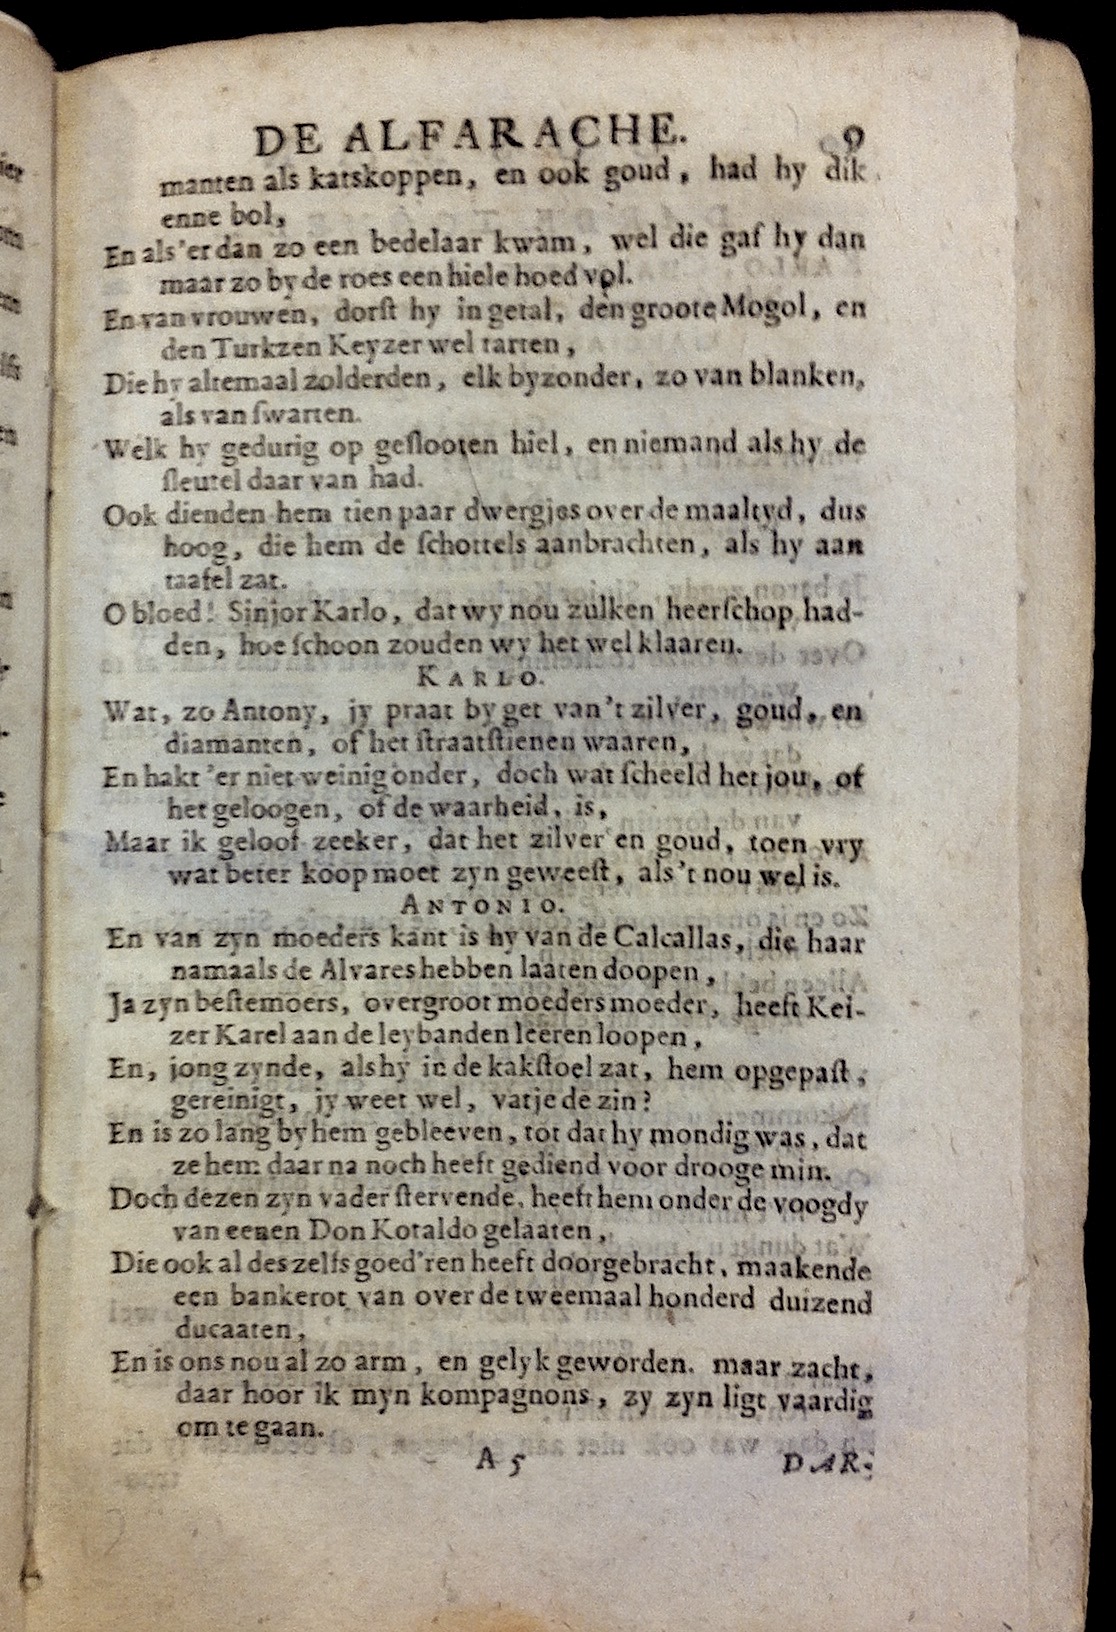 DE ALFARACHE. 9
manten als katskoppen, en ook goud, had hy dik
enne bol,
En als 'er dan zo een bedelaar kwam, wel die gaf hy dan
maar zo by de roes een hiele hoed vol.
En van vrouwen, dorſt hy in getal, den groote Mogol, en
den Turkzen Keyzer wel tarten,
Die hy altemaal zolderden, elk byzonder, zo van blanken,
als van ſwarten.
Welk hy gedurig op geſlooten hiel, en niemand als hy de
ſleutel daar van had.
Ook dienden hem tien paar dwergjes over de maaltyd, dus
hoog, die hem de ſchottels aanbrachten, als hy aan
taafel zat.
O bloed! Sinjor Karlo, dat wy nou zulken heerſchop had-
den, hoe ſchoon zouden wy het wel klaaren.
KARLO.
Wat, zo Antony, jy praat by get van 't zilver, goud, en
diamanten, of het ſtraatſtienen waaren,
En hakt 'er niet weinig onder, doch wat ſcheeld het jou, of
het geloogen, of de waarheid, is,
Maar ik geloof zeeker, dat het zilver en goud, toen vry
wat beter koop moet zyn geweeſt, als 't nou wel is.
ANTONIO.
En van zyn moeders kant is hy van de Calcallas, die haar
namaals de Alvares hebben laaten doopen,
Ja zyn beſtemoers, overgroot moeders moeder, heeft Kei-
zer Karel aan de leybanden leeren loopen,
En, jong zynde, als hy in de kakſtoel zat, hem opgepaſt,
gereinigt, jy weet wel, vatje de zin?
En is zo lang by hem gebleeven, tot dat hy mondig was, dat
ze hem daar na noch heeft gediend voor drooge min.
Doch dezen zyn vader ſtervende, heeft hem onder de voogdy
van eenen Don Kotaldo gelaaten,
Die ook al deszelfs goed'ren heeft doorgebracht, maakende
een bankerot van over de tweemaal honderd duizend
ducaaten,
En is ons nou al zo arm, en gelyk geworden. maar zacht,
daar hoor ik myn kompagnons, zy zyn ligt vaardig
om te gaan.
A 5 DAR-